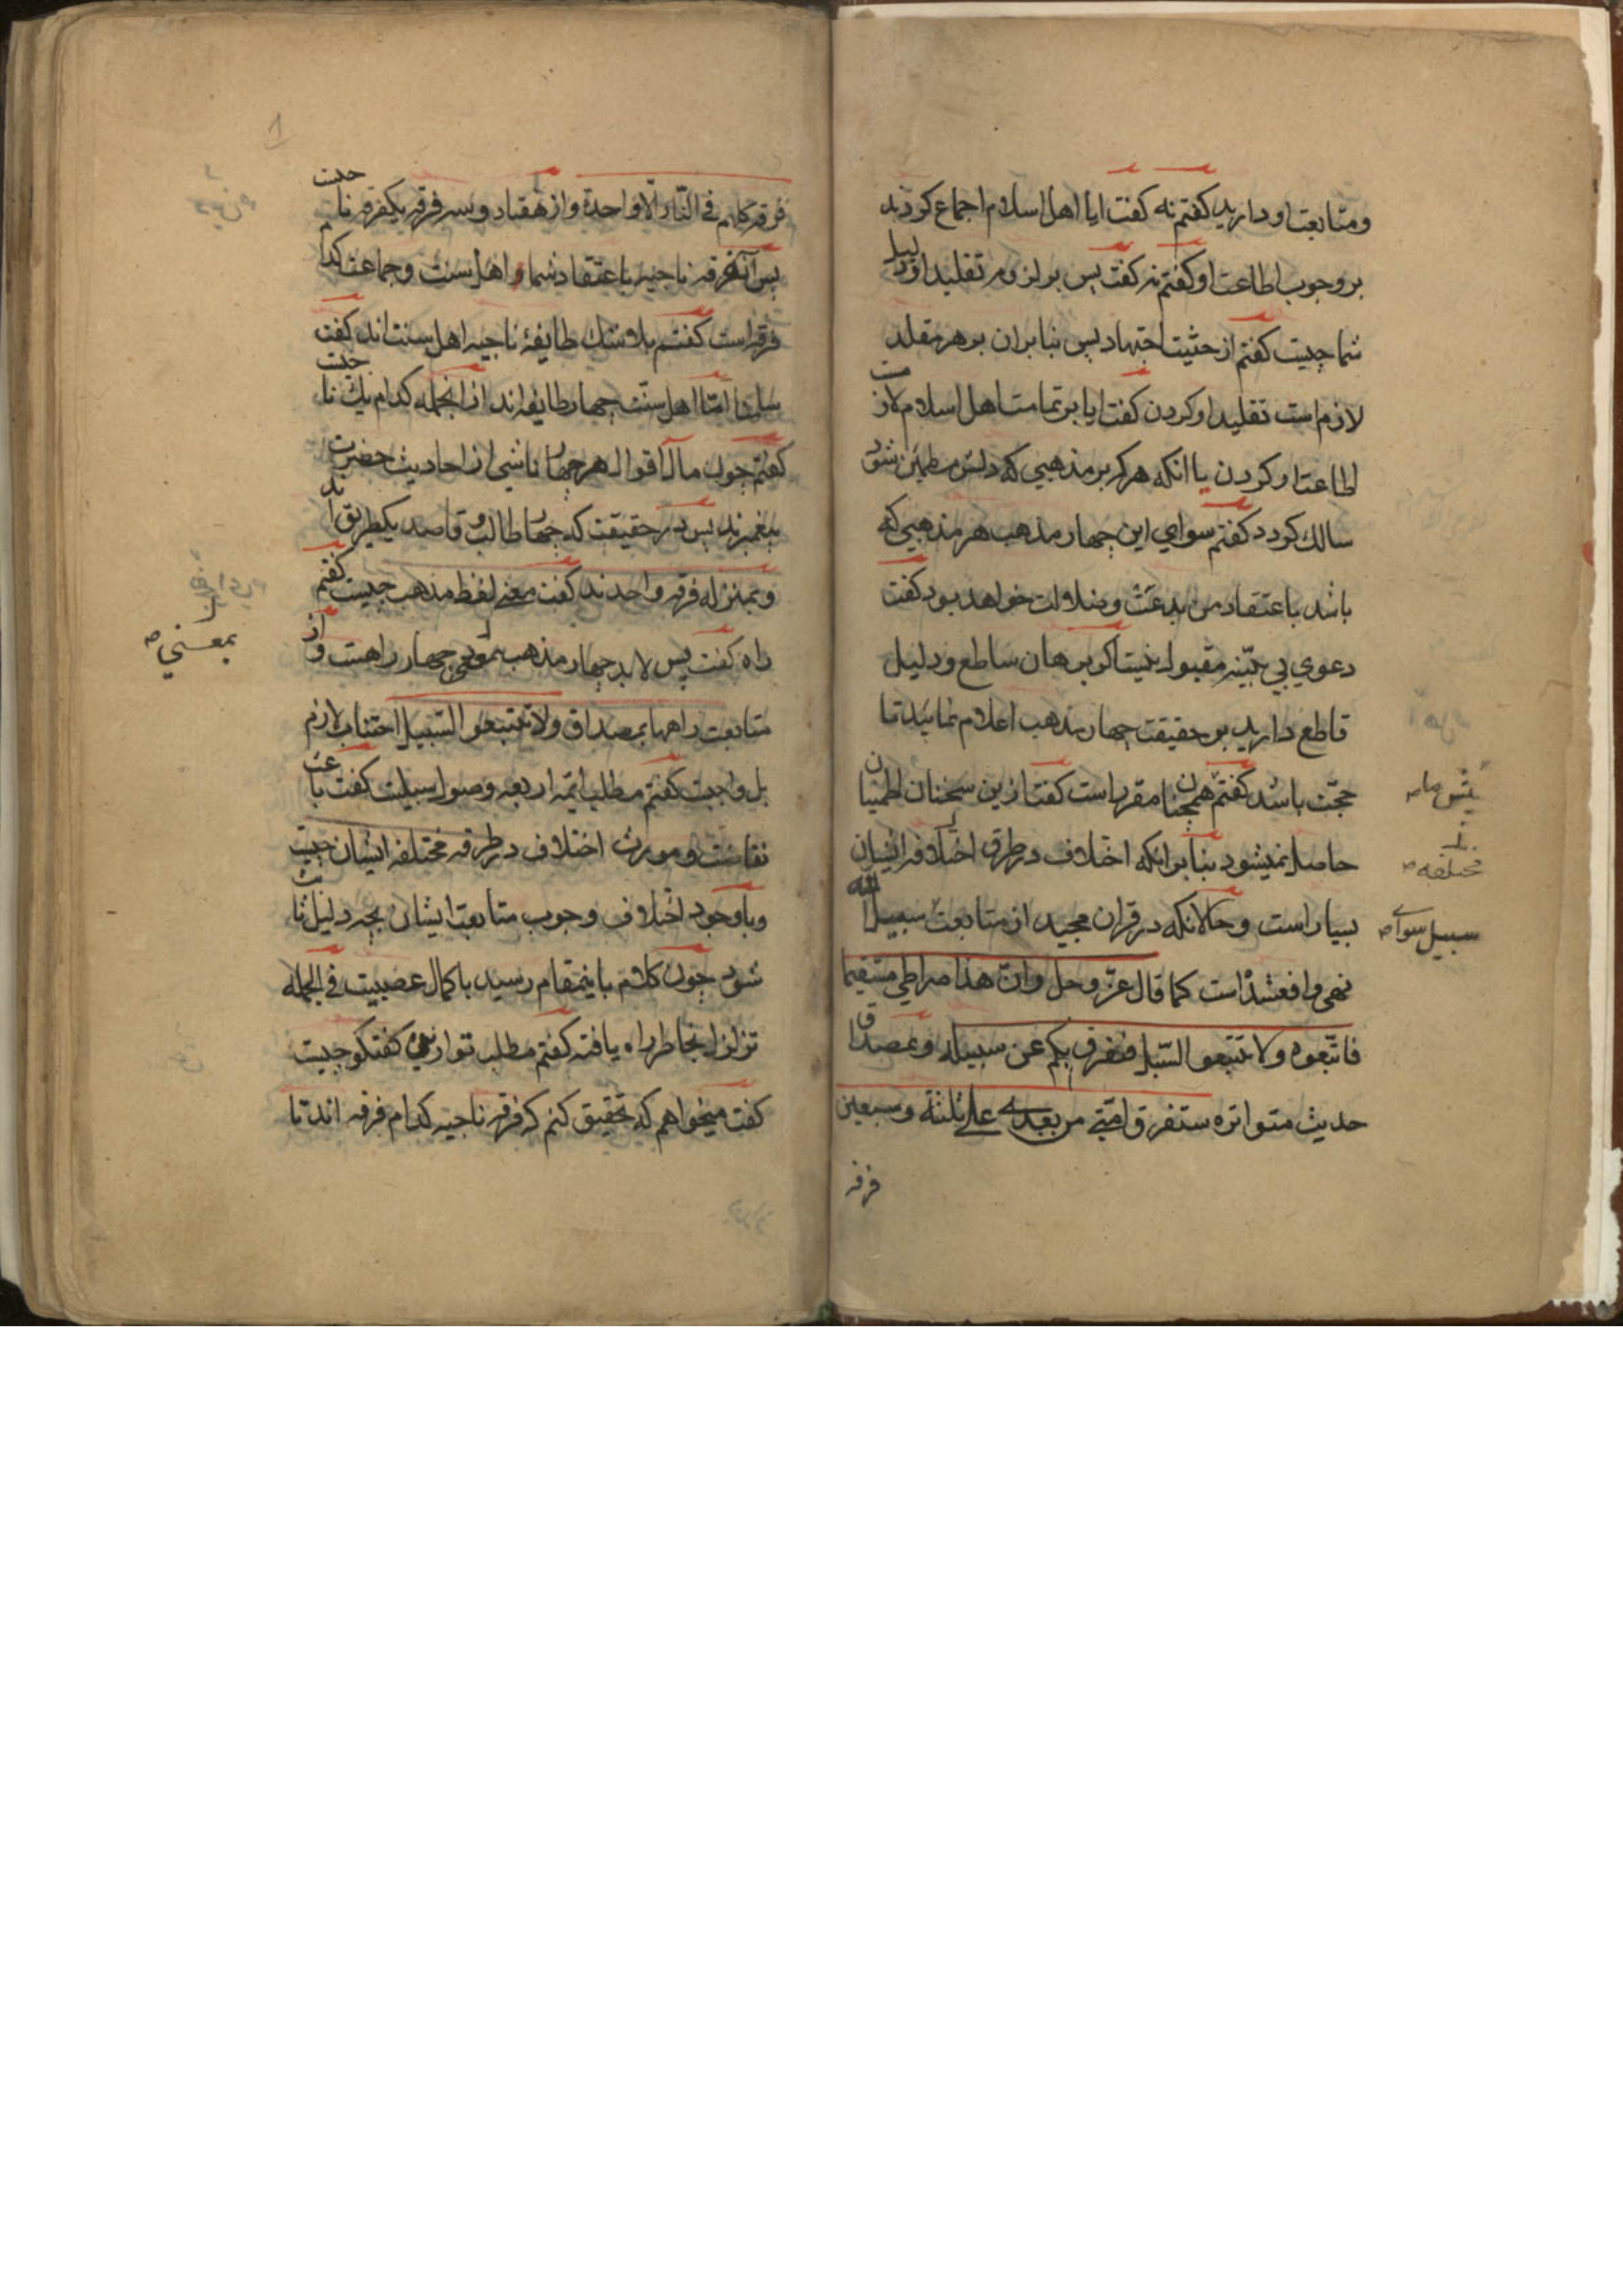 ومتابعت او دارید کفتم نه کفت ایا اهل اسلام اجماع کردند
بر وجوب اطاعت او کفتم نه کفت پس بر لزوم تقلید او دلیل
شما چیست کفتم از حثیت اجتهاد پس بنابران بر هر مقلد
لازم است تقلید او کردن کفت ایا بر تمامت اهل اسلام لازمست
اطاعت او کردن یا انکه هرکه بر مذهبی که دلش مطمئن شود
سالک کردد کفتم سوای این چهار مذهب هر مذهبی که
باشد باعتقاد من بدعت وضلالت خواهد بود کفت
دعوی بی بینه مقبول نیست اکر برهان ساطع ودلیل
قاطع دارید بر حقیقت چهار مذهب اعلام نمائید تا
حجت باشد کفتم همچنان مقرر است کفت ازین سخنان اطمینان
پیش ما
حاصل نمیشود بنابر انکه اختلاف در طرق اختلاف ایشان
مختلفه
بسیار است وحالانکه در قران مجید از متابعت سبیل الله
سبیل سوای
نهی واقع شده است کما قال عز وجل وان هذا صراطی مستقیما
فاتبعوه ولا تتبعوا السبل فتفرق بکم عن سبیله وبمصداق
حدیث متواتره ستفرق امتی من بعدی علی ثلثة وسبعین
فرقه
فرقه کلهم فی النار الا واحدة واز هفتاد وسه فرقه یکفرقه ناجیست
پس آن فرقه ناجیه باعتقاد شما واهل سنت وجماعت کدام
فرقه است کفتم بلاشک طایفهٔ ناجیه اهل سنت اند کفت
سلمنا امّا اهل سنت چهار طایفه اند از انجمله کدام یک ناجیست
کفتم چون مآل اقوال هر چهار ناشی از احادیث حضرت
پیغمبرند پس در حقیقت که چهار طالب وقاصد یکطریق اند
وبمنزله فرقه واحدند کفت معنی لفظ مذهب چیست کفتم
راه کفت پس لابد چهار مذهب بمعنی چهار راهست واز
بمعنی
متابعت راهها بمصداق ولا تتبعوا السبیل اجتناب لازم
بل واجبست کفتم مطلب ائمه اربعه وصول سبیلست کفت باعث
نفاست ومورث اختلاف در طرقه مختلفه ایشان چیست
وباوجود اختلاف وجوب متابعت ایشان بچه دلیل ثابت
شود چون کلام باینمقام رسید با کمال عصبیت فی الجمله
تزلزل بخاطر راه یافته کفتم مطلب تو ازین کفتکو چیست
کفت میخواهم که تحقیق کنم که فرقه ناجیه کدام فرقه اند تا